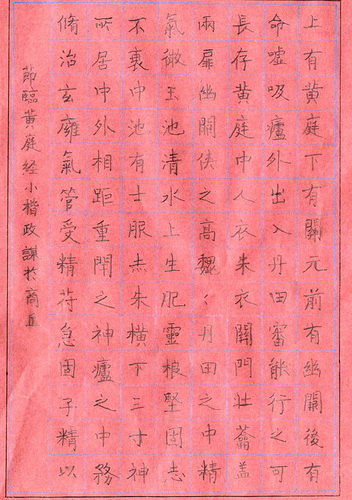 上有黄庭下有關元前有幽闕後有
命噓吸廬外出入丹田審能行之可
長存黄庭中人衣朱衣關門壮蘥盖
兩扉幽闕俠之高巍〻丹田之中精
氣微玉池清水上生肥靈根堅固志
不衰中池有士服赤朱横下三寸神
所居中外相距重閇之神廬之中務
脩治玄雍氣管受精苻急固子精以
節臨黄庭經小楷政謀於商丘